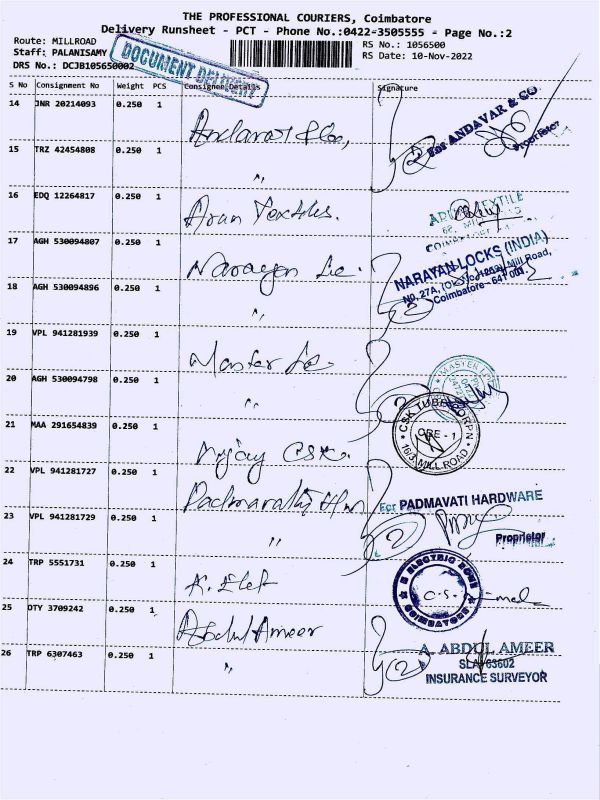 THE PROFESSIONAL COURIERS, Coimbatore
Delivery Runsheet - PCT - Phone No.:0422-3505555 - Page No.:2
Route: MILLROAD
RS No.: 1056500
Staff: PALANISAMY
RS Date: 10-Nov-2022
DRS No.: DCJB105650002
DOCUMENT DELIVERY
S No Consignment No Weight PCS Consignee Details Signature
14 JNR 20214093 0.250 1
Andavar & Co,
For ANDAVAR & CO.
Proprietor
15 TRZ 42454808 0.250 1
"
2
16 EDQ 12264817 0.250 1
Arun Textiles.
TEXTILE
17 AGH 530094807 0.250 1
Narayan Loc.
NARAYAN LOCKS (INDIA)
No. 27A, Mill Road,
Coimbatore - 641 001.
18 AGH 530094896 0.250 1
"
2
19 VPL 941281939 0.250 1
Master
MASTER
20 AGH 530094798 0.250 1
"
2
21 MAA 291654839 0.250 1
CSK.
CSK TUBE CORPN
CBE - 1
16/3, MILL ROAD
22 VPL 941281727 0.250 1
Padmavathi H/w
For PADMAVATI HARDWARE
Proprietor
23 VPL 941281729 0.250 1
"
2
24 TRP 5551731 0.250 1
A. Elet
ELECTRIC
COIMBATORE
25 OTY 3709242 0.250 1
Abdul Ameer
A. ABDUL AMEER
SLA 63602
INSURANCE SURVEYOR
26 TRP 6307463 0.250 1
"
2